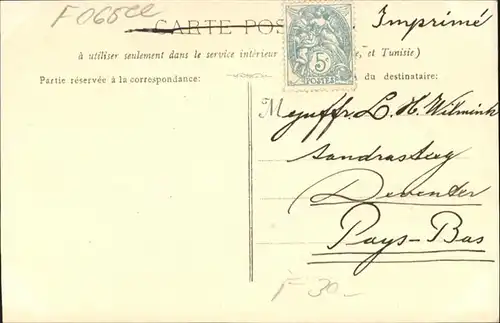 F 065ee
CARTE POS
Imprimé
à utiliser seulement dans le service intérieur e, et Tunisie)
Partie réservée à la correspondance:
du destinataire:
5c
POSTES
Mejuffr. L. H. Wilmink
Sandrasteeg
Deventer
Pays-Bas
F 30-